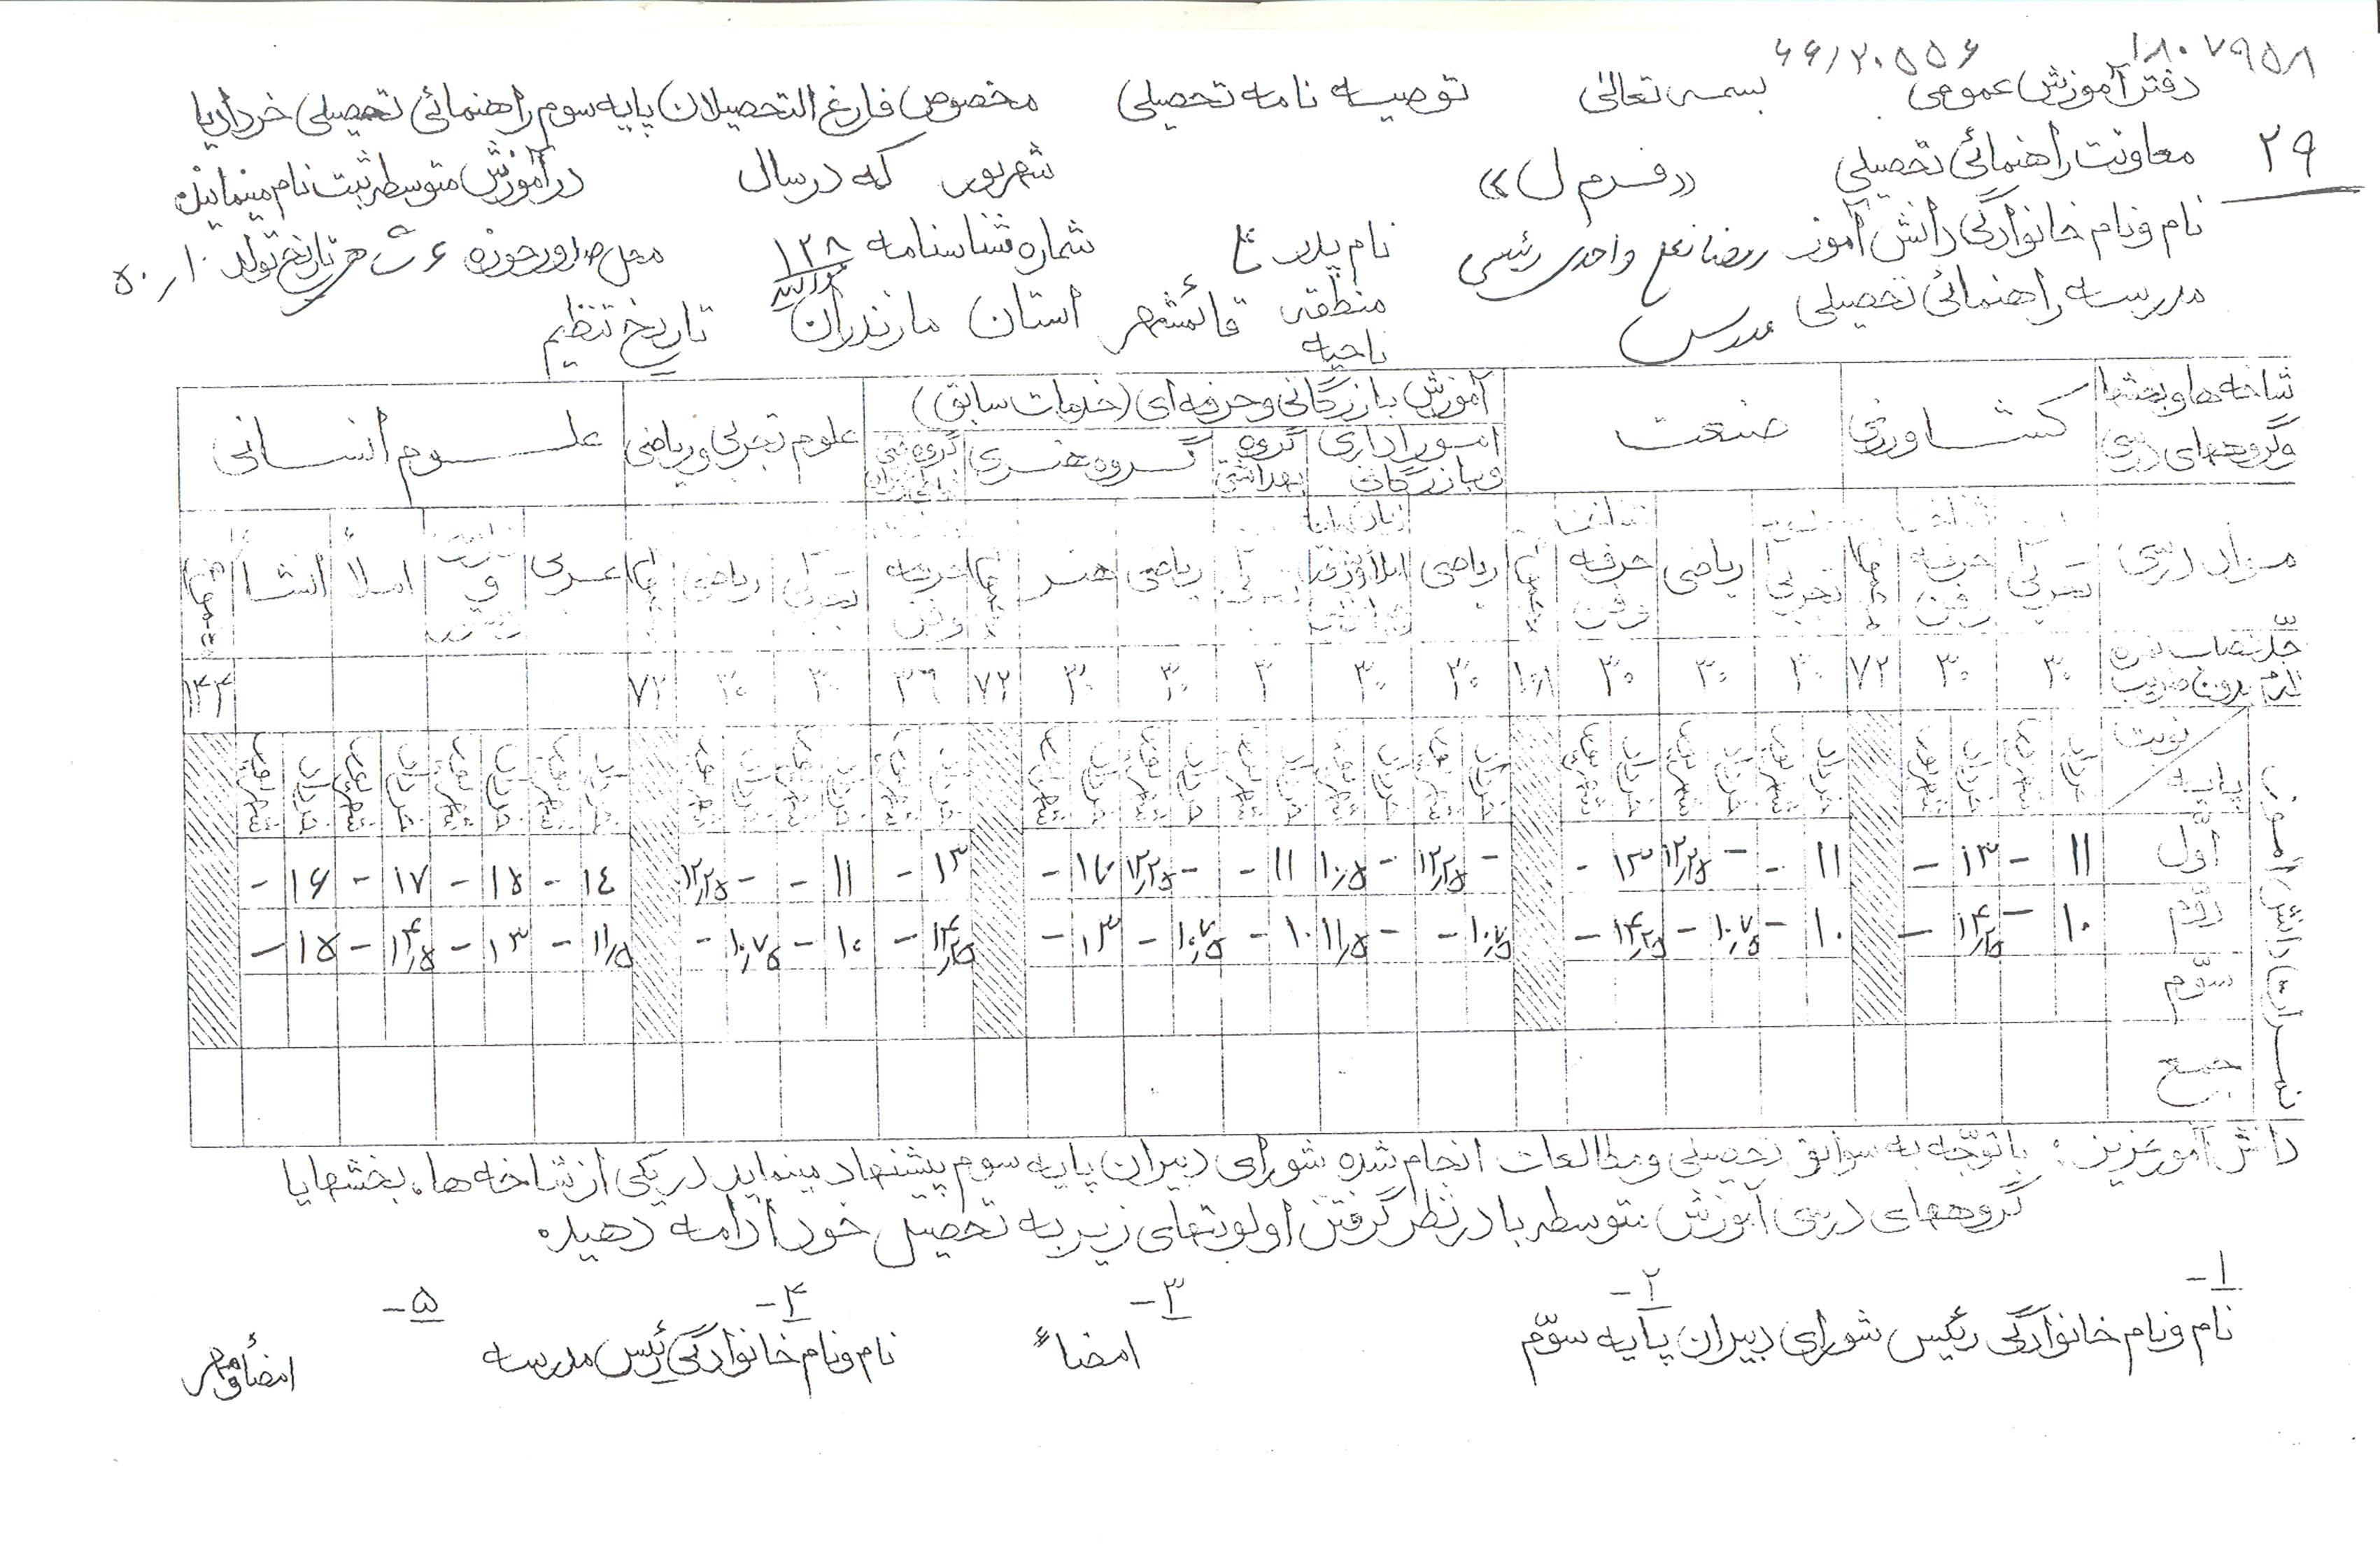 ۱۸۰۷۹۵۸ ۶۶/۲۰۵۵۶
دفتر آموزش عمومی بسمه تعالی توصیه نامه تحصیلی مخصوص فارغ التحصیلان پایه سوم راهنمائی تحصیلی خرداد یا
۲۹ معاونت راهنمائی تحصیلی «فرم ل» شهریور که در سال در آموزش متوسطه ثبت نام مینمایند
نام و نام خانوادگی دانش آموز رمضانعلی واحدی رئیسی نام پدر شماره شناسنامه ۱۲۸ محل صدور حوزه ۶ تاریخ تولد ۵۰/۱۰
مدرسه راهنمائی تحصیلی مدرس منطقه قائمشهر استان مازندران تاریخ تنظیم
ناحیه
شاخه ها و بخشها کشاورزی صنعت آموزش بازرگانی و حرفه ای (خدمات سابق) علوم تجربی و ریاضی علوم انسانی
و گروههای درسی امور اداری گروه گروه هنری
و بازرگانی بهداشتی
مواد درسی تجربی حرفه و فن جمع تجربی ریاضی حرفه و فن جمع ریاضی ریاضی هنر جمع حرفه و فن تجربی ریاضی جمع عربی و املأ انشأ جمع
حد نصاب نمره ۳۰ ۳۰ ۷۲ ۳۰ ۳۰ ۳۰ ۱۰۸ ۳۰ ۳۰ ۳۰ ۳۰ ۳۰ ۷۲ ۳۶ ۳۰ ۳۰ ۷۲ ۱۴۴
لازم بدون ضریب
نوبت خرداد شهریور خرداد شهریور خرداد شهریور خرداد شهریور خرداد شهریور خرداد شهریور خرداد شهریور خرداد شهریور خرداد شهریور خرداد شهریور خرداد شهریور خرداد شهریور خرداد شهریور خرداد شهریور خرداد شهریور خرداد شهریور خرداد شهریور
پایه
نمرات دانش آموز
اول ۱۱ - ۱۳ - ۱۱ - - ۱۲/۲۵ ۱۳ - - ۱۲/۲۵ - ۱۰/۵ ۱۱ - - ۱۲/۲۵ ۱۷ - ۱۳ - ۱۱ - - ۱۲/۲۵ ۱٤ - ۱۵ - ۱۷ - ۱۶ -
دوم ۱۰ - ۱۴/۲۵ - ۱۰ - ۱۰/۷۵ - ۱۴/۲۵ - ۱۰/۷۵ - - ۱۱/۵ ۱۰ - ۱۰/۷۵ - ۱۳ - ۱۴/۲۵ - ۱۰ - ۱۰/۷۵ - ۱۱/۵ - ۱۳ - ۱۴/۵ - ۱۵ -
سوم
جمع
دانش آموز عزیز: با توجه به سوابق تحصیلی و مطالعات انجام شده شورای دبیران پایه سوم پیشنهاد مینماید در یکی از شاخه ها، بخشها یا
گروههای درسی آموزش متوسطه با در نظر گرفتن اولویتهای زیر به تحصیل خود ادامه دهید.
۱- ۲- ۳- ۴- ۵-
نام و نام خانوادگی رئیس شورای دبیران پایه سوم امضاء نام و نام خانوادگی رئیس مدرسه امضأ و مهر